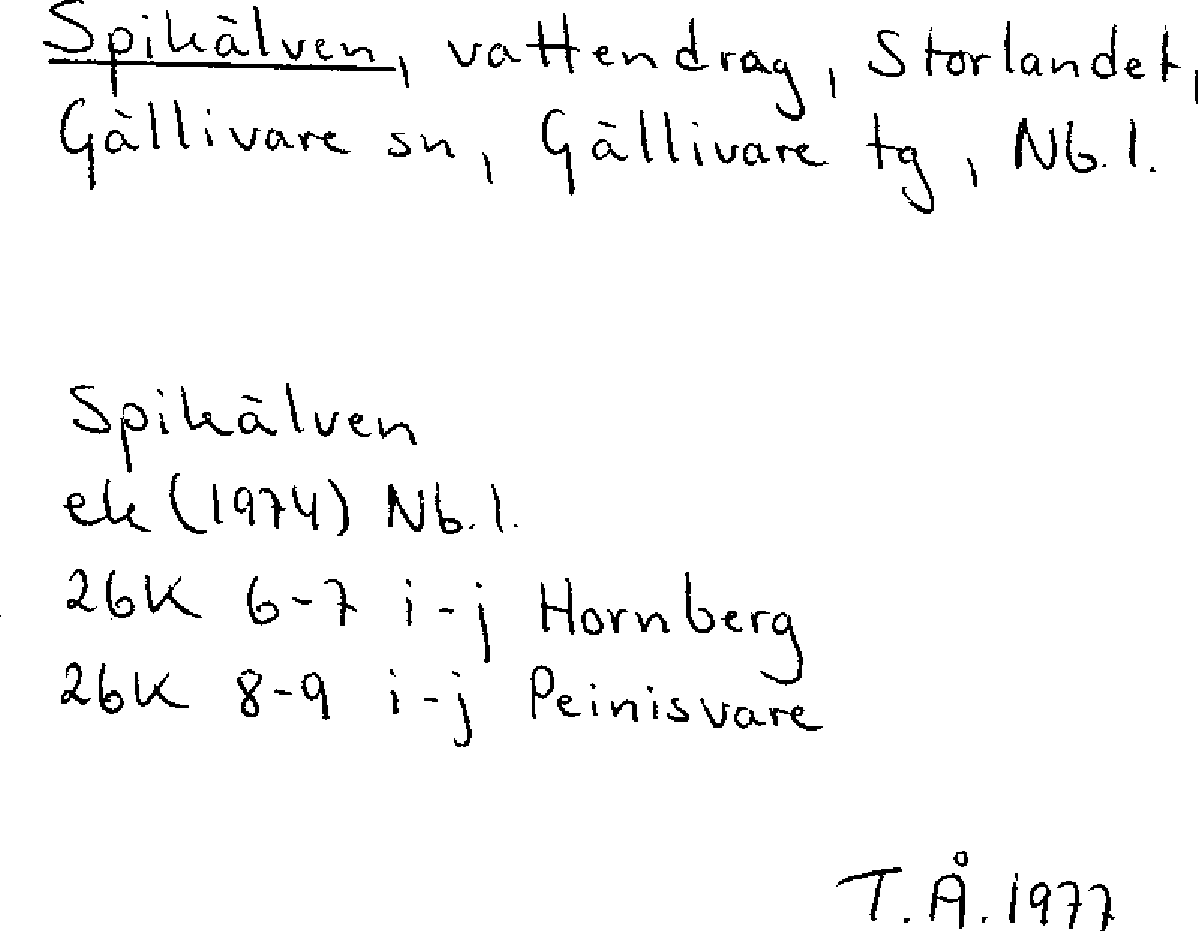 Spikälven, vattendrag, Storlandet,
Gällivare sn, Gällivare tg, Nb.l.
Spikälven
ek (1974) Nb.l.
26K 6-7 i-j Hornberg
26K 8-9 i-j Peinisvare
T.Å.1977